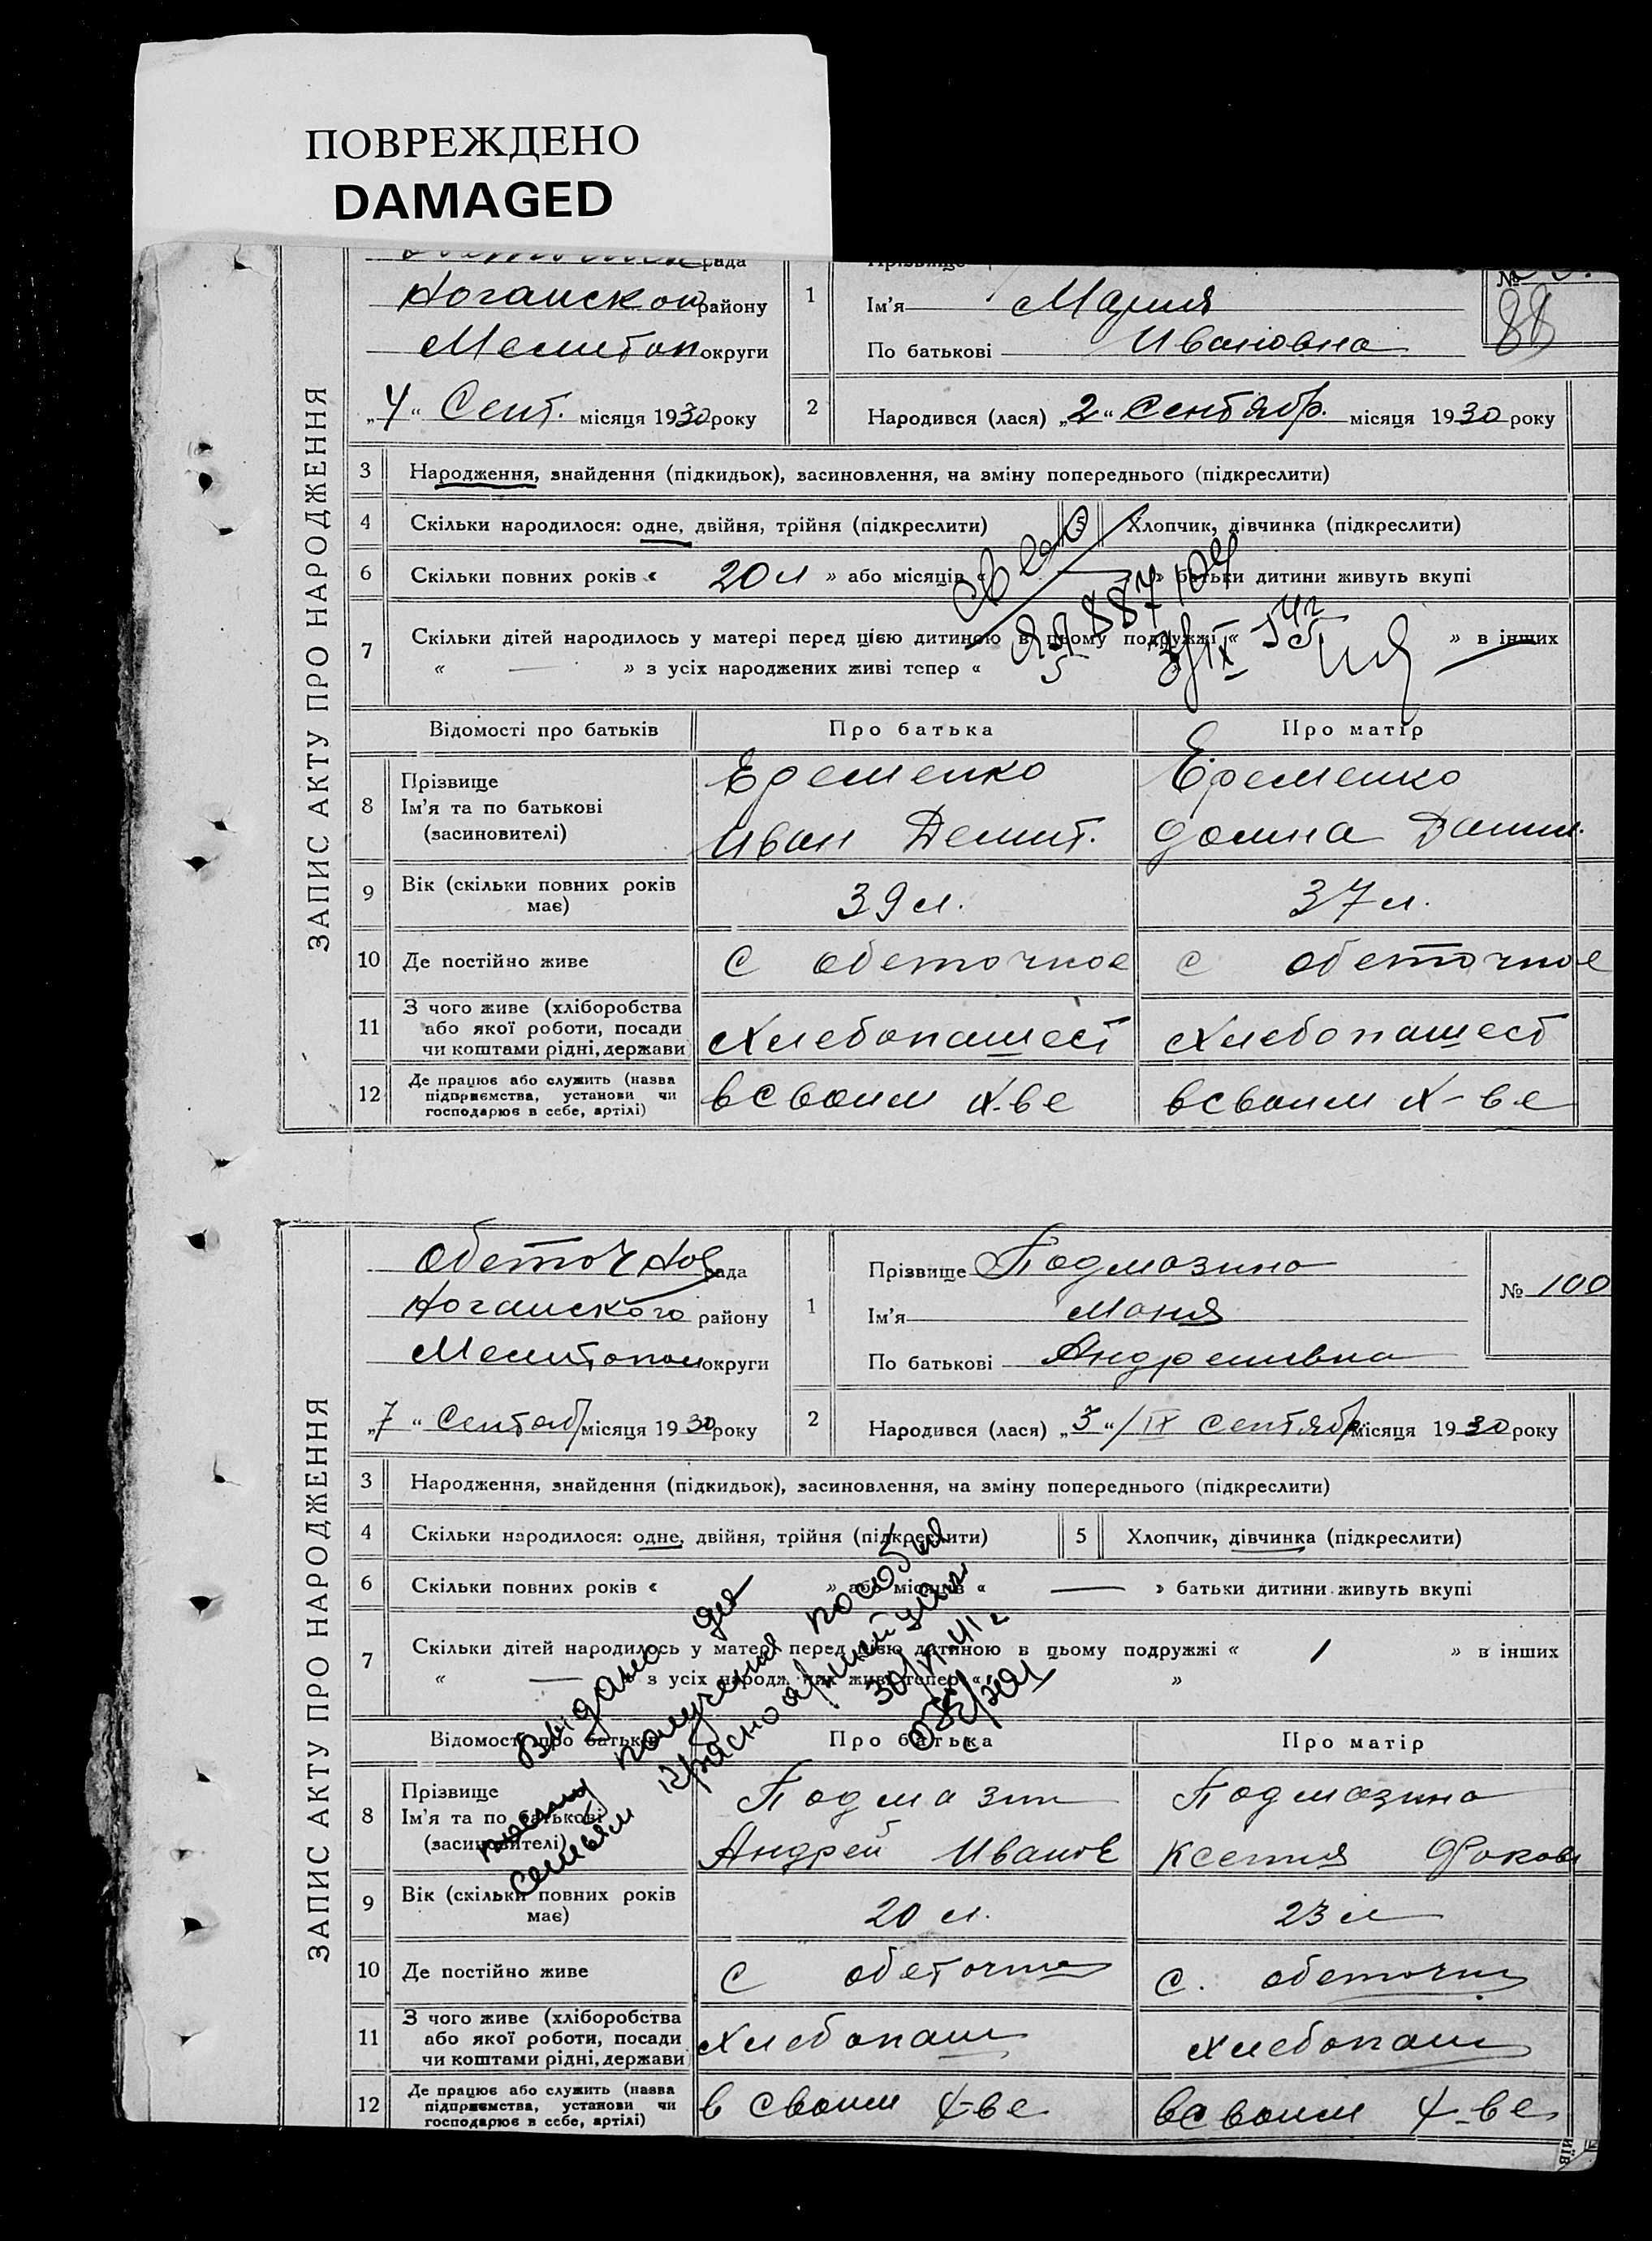 ПОВРЕЖДЕНО
DAMAGED
ЗАПИС АКТУ ПРО НАРОДЖЕННЯ
рада
района
Ногайской району
Мелитоп округи
„4“ Сент. місяця 1930 року
1
Прізвище
Ім'я Мария
По батькові Ивановна
№
88
2 Народився (лася) „2“ Сентябр. місяця 1930 року
3 Народження, знайдення (підкидьок), засиновлення, на зміну попереднього (підкреслити)
4 Скільки народилося: одне, двійня, трійня (підкреслити) 5 Хлопчик, дівчинка (підкреслити)
6 Скільки повних років « 20 л » або місяців « — » батьки дитини живуть вкупі
7 Скільки дітей народилось у матері перед цією дитиною в цьому подружжі « 5 » в інших
« — » з усіх народжених живі тепер « 5
Відомості про батьків Про батька Про матір
8 Прізвище Ім'я та по батькові (засиновителі)
Еременко Еременко
Иван Демит. Домна Данил.
9 Вік (скільки повних років має) 39 л. 37 л.
10 Де постійно живе с Обеточное с Обеточное
11 З чого живе (хліборобства або якої роботи, посади чи коштами рідні, держави Хлебопашест Хлебопашест
12 Де працює або служить (назва підприємства, установи чи господарює в себе, артілі) в своим х-ве в своим х-ве
ЗАПИС АКТУ ПРО НАРОДЖЕННЯ
Обеточной рада
Ногайского району
Мелитопол округи
„7“ Сентяб місяця 1930 року
1
Прізвище Подмазина
Ім'я Мария
По батькові Андреивна
№ 100
2 Народився (лася) „3“/IX сентябр місяця 1930 року
3 Народження, знайдення (підкидьок), засиновлення, на зміну попереднього (підкреслити)
4 Скільки народилося: одне, двійня, трійня (підкреслити) 5 Хлопчик, дівчинка (підкреслити)
6 Скільки повних років « » або місяців « — » батьки дитини живуть вкупі
7 Скільки дітей народилось у матері перед цією дитиною в цьому подружжі « 1 » в інших
« — » з усіх народжених живі тепер « »
Выдано для
получения пособия
семьям красноармейцам
30/VI 41 г
Відомості про батьків Про батька Про матір
8 Прізвище Ім'я та по батькові (засиновителі)
Подмазин Подмазина
Андрей Иванов Ксения Фоков
9 Вік (скільки повних років має) 20 л. 23 л
10 Де постійно живе с Обеточна с. Обеточна
11 З чого живе (хліборобства або якої роботи, посади чи коштами рідні, держави Хлебопаш Хлебопаш
12 Де працює або служить (назва підприємства, установи чи господарює в себе, артілі) в своим х-ве в своим х-ве